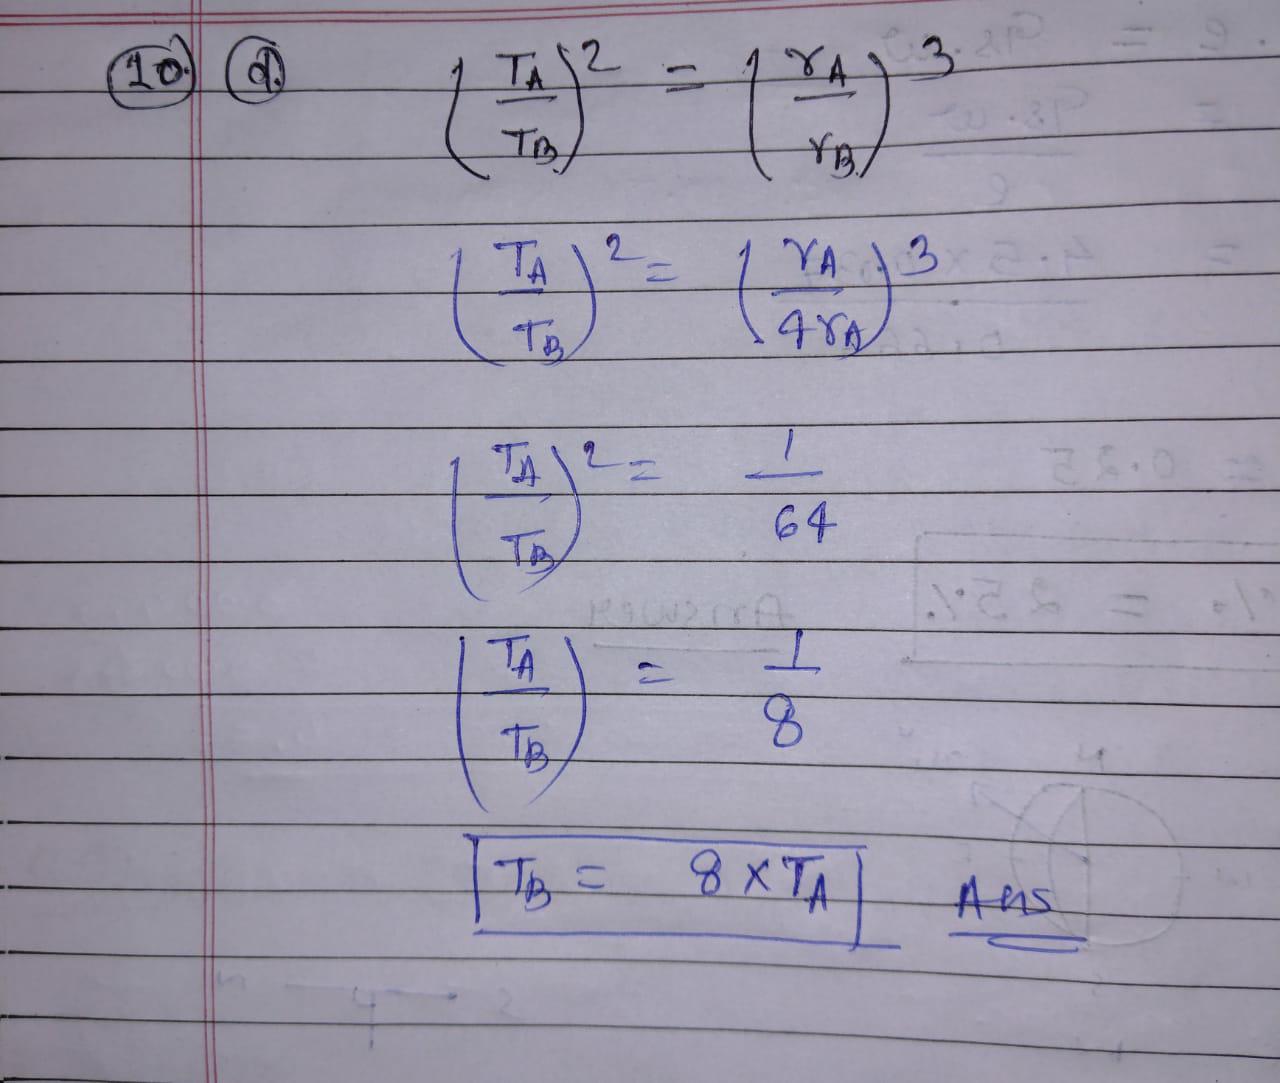 10. d. (TA/TB)² = (rA/rB)³
(TA/TB)² = (rA/4rA)³
(TA/TB)² = 1/64
(TA/TB) = 1/8
TB = 8 × TA Ans